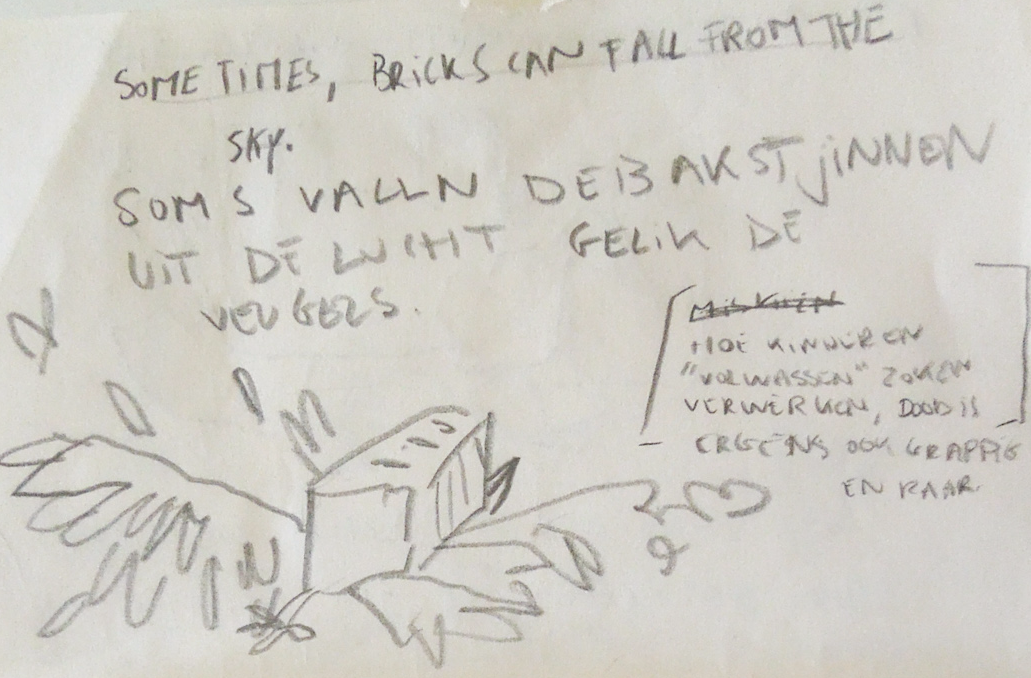 SOMETIMES, BRICKS CAN FALL FROM THE
SKY.
SOMS VALLN DE BAKSTJINNEN
UIT DE LUCHT GELIK DE
VEUGELS.
HOE KINDEREN
"VOLWASSEN" ZAKEN
VERWERKEN, DOOD IS
ERGENS OOK GRAPPIG
EN RAAR.